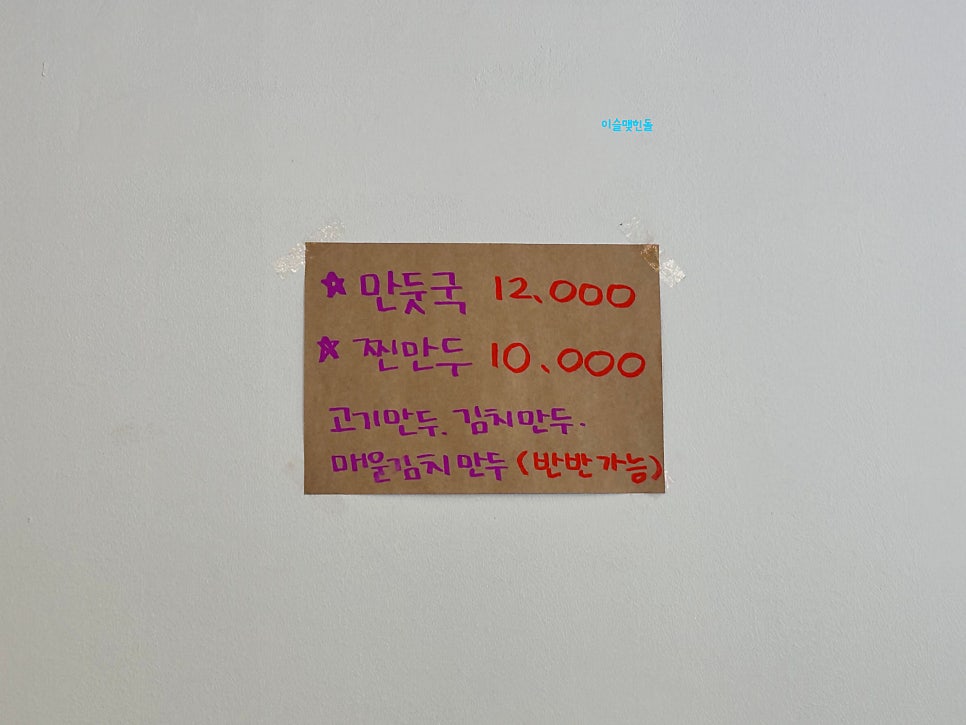 이슬맺힌돌
☆ 만둣국 12,000
☆ 찐만두 10,000
고기만두, 김치만두,
매운김치만두 (반반가능)